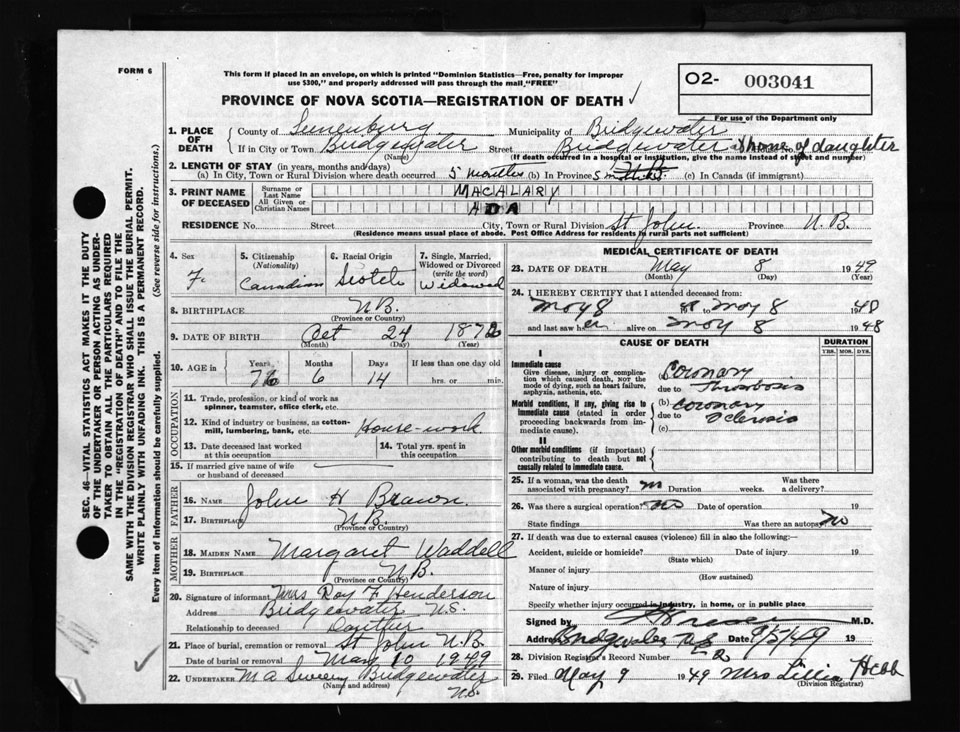 FORM 6
This form if placed in an envelope, on which is printed "Dominion Statistics—Free, penalty for improper
use $300," and properly addressed will pass through the mail, "FREE"
O2- 003041
For use of the Department only
PROVINCE OF NOVA SCOTIA—REGISTRATION OF DEATH ✓
1. PLACE OF DEATH
County of Lunenburg Municipality of Bridgewater
If in City or Town Bridgewater Street Bridgewater at home of daughter
(Name) (If death occurred in a hospital or institution, give the name instead of street and number)
2. LENGTH OF STAY (in years, months and days)
(a) In City, Town or Rural Division where death occurred 5 months (b) In Province 5 m (c) In Canada (if immigrant)
3. PRINT NAME OF DECEASED
Surname or Last Name MACALARY
All Given or Christian Names ADA
RESIDENCE No. Street City, Town or Rural Division St John Province N.B.
(Residence means usual place of abode. Post Office Address for residents in rural parts not sufficient)
4. Sex F.
5. Citizenship (Nationality) Canadian
6. Racial Origin Scotch
7. Single, Married, Widowed or Divorced (write the word) Widowed
8. BIRTHPLACE N.B.
(Province or Country)
9. DATE OF BIRTH Oct 24 1872
(Month) (Day) (Year)
10. AGE in Years 76 Months 6 Days 14 If less than one day old
hrs. or min.
OCCUPATION
11. Trade, profession, or kind of work as
spinner, teamster, office clerk, etc.
12. Kind of industry or business, as cotton-
mill, lumbering, bank, etc. House-work
13. Date deceased last worked
at this occupation
14. Total yrs. spent in
this occupation
15. If married give name of wife
or husband of deceased
FATHER
16. NAME John H Brawn
17. BIRTHPLACE N.B.
(Province or Country)
MOTHER
18. MAIDEN NAME Margaret Waddell
19. BIRTHPLACE N.B.
(Province or Country)
20. Signature of informant Mrs Roy F Henderson
Address Bridgewater N.S.
Relationship to deceased Douther
21. Place of burial, cremation or removal St John N.B.
Date of burial or removal May 10 1949
22. UNDERTAKER M A Sweeny Bridgewater
(Name and address) N.S.
MEDICAL CERTIFICATE OF DEATH
23. DATE OF DEATH May 8 1949
(Month) (Day) (Year)
24. I HEREBY CERTIFY that I attended deceased from:
May 8 to May 8 1948
and last saw her alive on May 8 1948
CAUSE OF DEATH DURATION
YRS. MOS. DYS.
I
Immediate cause
Give disease, injury or complica-
tion which caused death, not the
mode of dying, such as heart failure,
asphyxia, asthenia, etc.
(a) Coronary
due to Thrombosis
Morbid conditions, if any, giving rise to
immediate cause (stated in order
proceeding backwards from im-
mediate cause).
(b) Coronary
due to Sclerosis
(c)
II
Other morbid conditions (if important)
contributing to death but not
causally related to immediate cause.
25. If a woman, was the death
associated with pregnancy? Duration weeks. Was there
a delivery?
26. Was there a surgical operation? no Date of operation 19
State findings Was there an autopsy? no
27. If death was due to external causes (violence) fill in also the following:—
Accident, suicide or homicide? Date of injury 19
(State which)
Manner of injury
(How sustained)
Nature of injury
Specify whether injury occurred in industry, in home, or in public place
Signed by M.D.
Address Bridgewater N.S. Date 9/5/49 19
28. Division Registrar's Record Number 2
29. Filed May 9 1949 Mrs Lillia Hebb
(Division Registrar)
SEC. 46—VITAL STATISTICS ACT MAKES IT THE DUTY
OF THE UNDERTAKER OR PERSON ACTING AS UNDER-
TAKER TO OBTAIN ALL THE PARTICULARS REQUIRED
IN THE "REGISTRATION OF DEATH" AND TO FILE THE
SAME WITH THE DIVISION REGISTRAR WHO SHALL ISSUE THE BURIAL PERMIT.
WRITE PLAINLY WITH UNFADING INK. THIS IS A PERMANENT RECORD.
Every item of information should be carefully supplied. (See reverse side for instructions.)